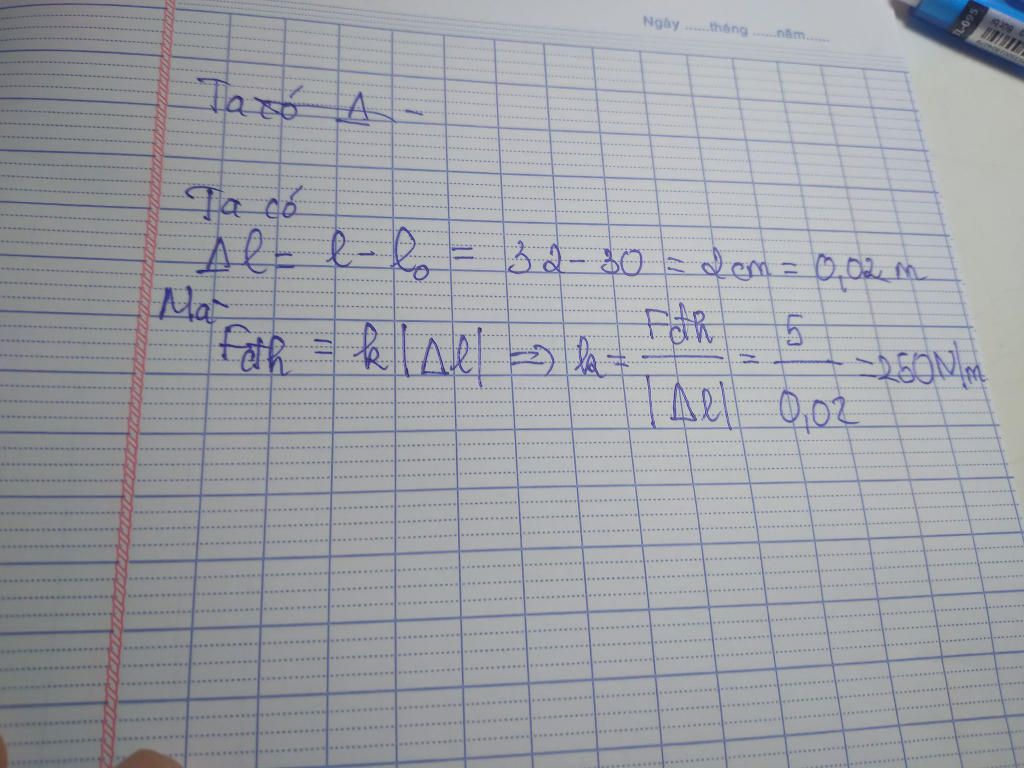 Ngày ......tháng ......năm......
Ta có Δ -
Ta có
Δl = l - l₀ = 32 - 30 = 2 cm = 0,02 m
Mà
Fđh = k |Δl| => k = Fđh / |Δl| = 5 / 0,02 = 250N/m